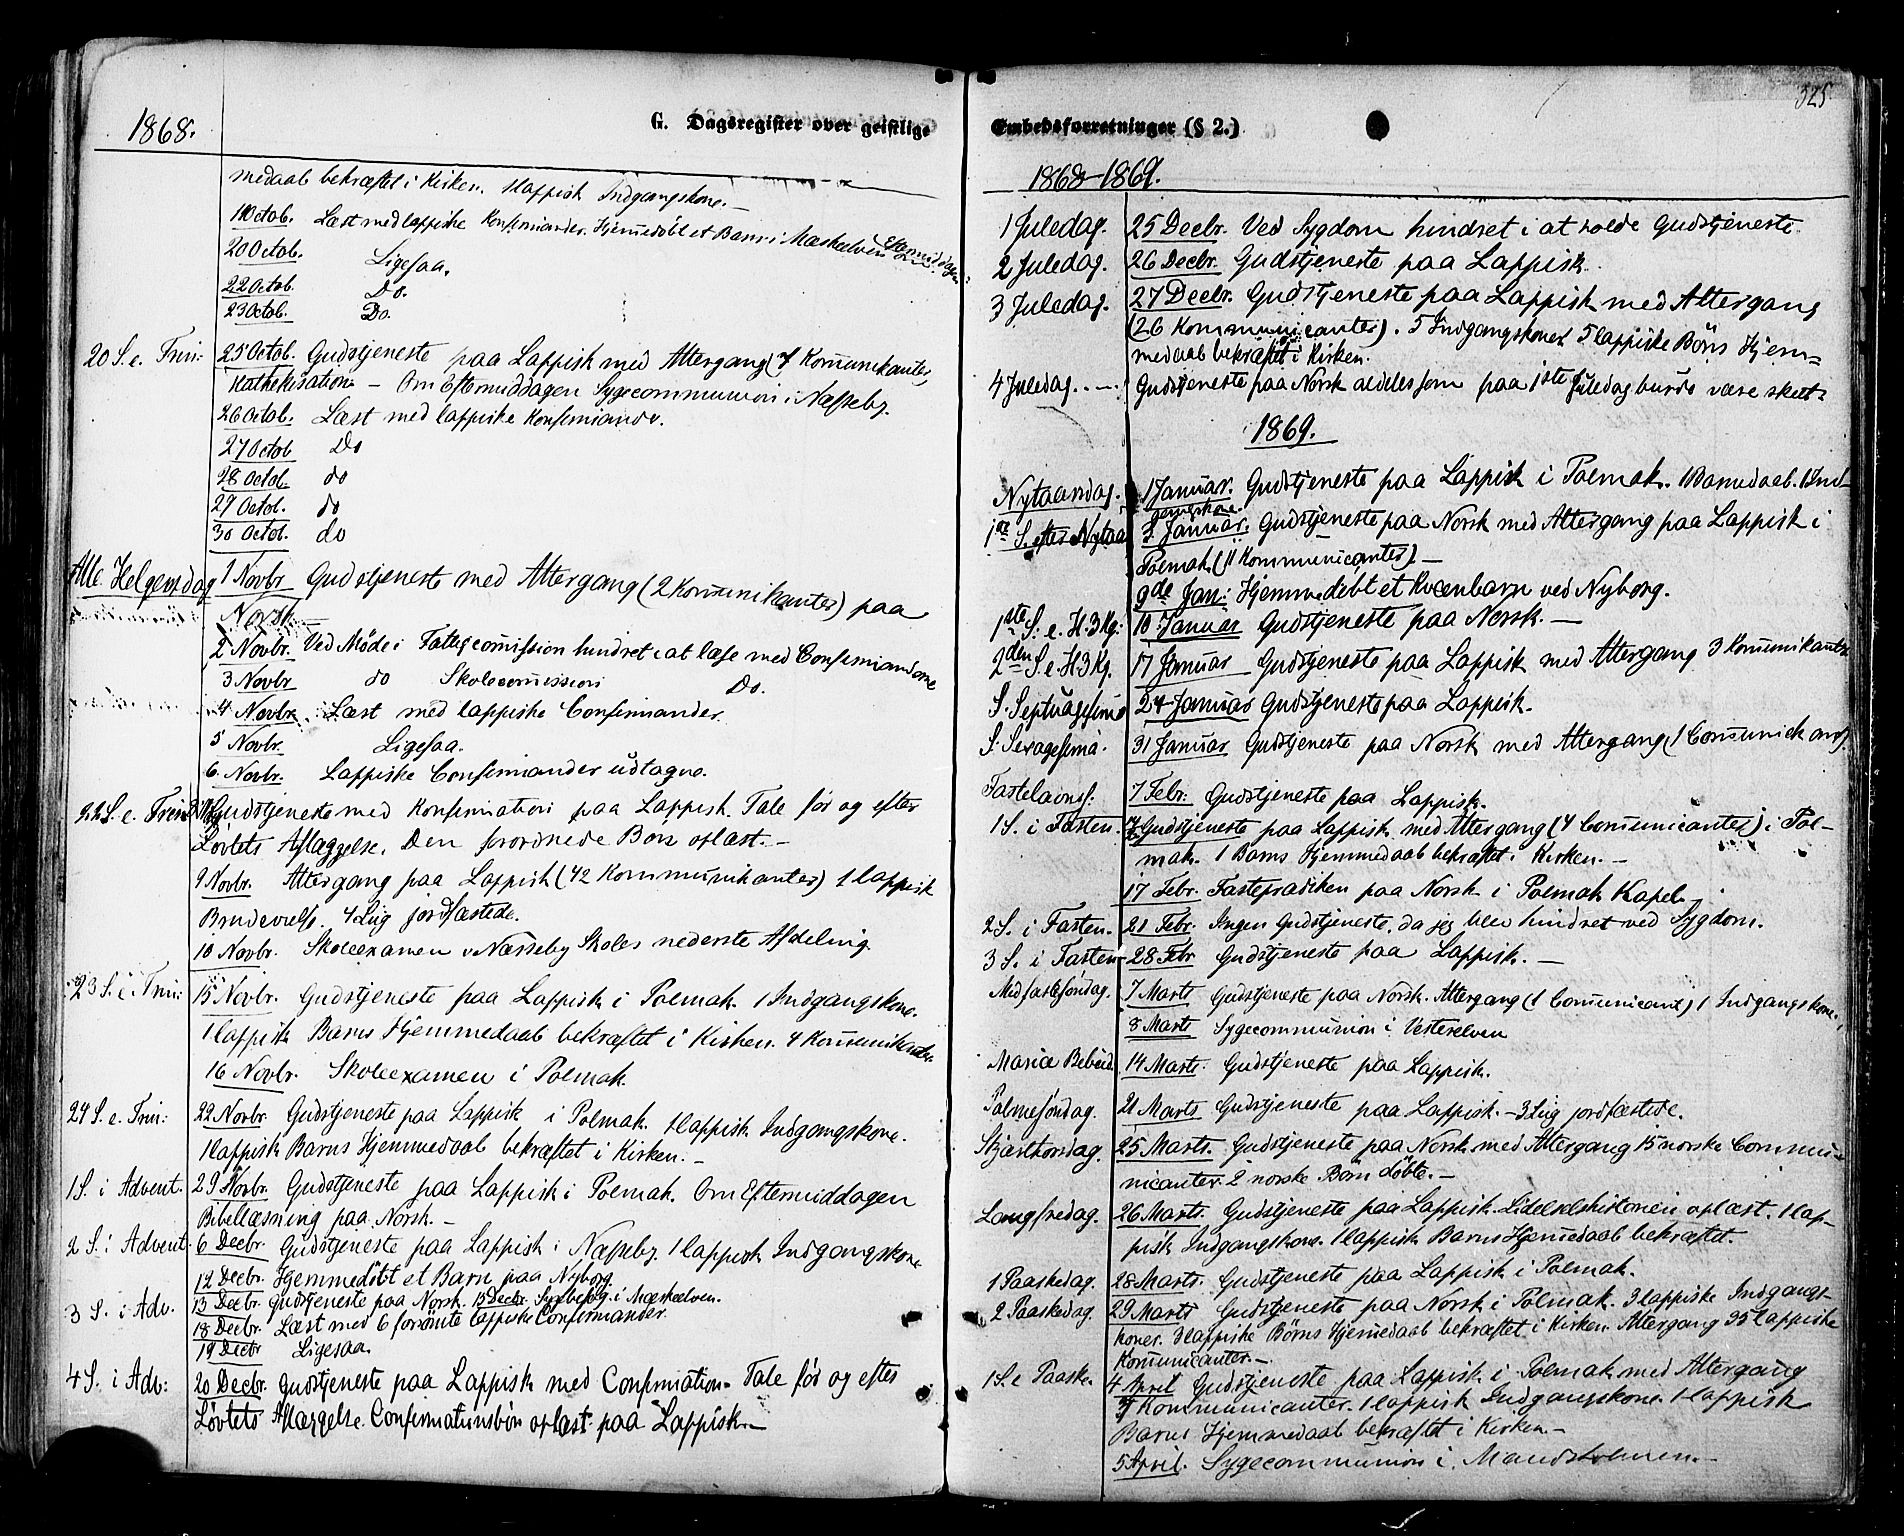 1868.
G. Dagsregister over geistlige
medaab bekræftet i Kirken. 1 lappisk Indgangskone. —
Octob. Læst med lappiske Konfirmander. Hjemmedöbt et Barn i Mæskelven Eftermiddagen
20 Octob. Ligesaa.
22 Octob. Do.
23 Octob. Do.
20 S. e. Trin: 25 Octob. Gudstjeneste paa Lappisk med Altergang (7 Kommunikanter)
Kathekisation — Om Eftermiddagen Sygecommunion i Næsseby.
26 Octob. Læst med lappiske Konfirmander.
27 Octob Do
28 Octob. do
29 Octob. do
30 Octob. do
Alle Helgensdag 1 Novbr Gudstjeneste med Altergang (2 Kommunikanter) paa
Norsk. —
2 Novbr. Ved Møde i Fattigcomission hindret i at læse med Confirmanderne
3 Novbr do Skolecomission Do.
4 Novbr. Læst med lappiske Confirmander
5 Novbr. Ligesaa.
6. Novbr. Lappiske Confirmander udtagne.
22 S. e. Trin: Gudstjeneste med Konfirmation paa Lappisk. Tale før og efter
Løvtets Aflæggelse. Den forordnede Bøn oplæst. —
9 Novbr. Altergang paa Lappisk (42 Kommunikanter) 1 lappisk
Brudevielse. 4 Liig jordfæstede.
10 Novbr. Skoleexamen v Næsseby Skoles nederste Afdeling.
23 S. e. Trin: 15 Novbr. Gudstjeneste paa Lappisk i Polmak. 1 Indgangskone.
1 lappisk Barns Hjemmedaab bekræftet i Kirken. 4 Kommunikanter.
16 Novbr. Skoleexamen i Polmak.
24 S. e. Trin: 22 Novbr. Gudstjeneste paa Lappisk i Polmak. 1 lappisk Indgangskone.
1 lappisk Barns Hjemmedaab bekræftet i Kirken. —
1 S. i Advent. 29 Novbr. Gudstjeneste paa Lappisk i Polmak. Om Eftermiddagen
Bibellæsning paa Norsk. —
2 S. i Advent. 6 Decbr. Gudstjeneste paa Lappisk i Næsseby. 1 lappisk Indgangskone
12 Decbr. Hjemmedöbt et Barn paa Nyborg.
3 S. i Adv. 13 Decbr. Gudstjeneste paa Norsk. 15 Decbr. Sygebesøg i Mæskelven.
18 Decbr. Læst med 6 forsømte lappiske Confirmander.
19 Decbr Ligesaa.
4 S. i Adv: 20 Decbr. Gudstjeneste paa Lappisk med Confirmation. Tale før og efter
Løvtets Aflæggelse. Confirmationsbön oplæst paa Lappisk. —
525
Embedsforretninger (§ 2.)
1868-1869.
1 Juledag. 25 Decbr. Ved Sygdom hindret i at holde Gudstjeneste.
2 Juledag. 26 Decbr. Gudstjeneste paa Lappisk.
3 Juledag. 27 Decbr. Gudstjeneste paa Lappisk med Altergang
(26 Kommunicanter). 5 Indgangskoner 5 lappiske Börns Hjem-
medaab bekræftet i Kirken.
4 Juledag. Gudstjeneste paa Norsk aldeles som paa 1ste Juledag burde være skeet.
1869.
Nytaarsdag. 1 Januar. Gudstjeneste paa Lappisk i Polmak. 1 Barnedaab. 1 Ind-
gangskone.
1ste S. efter Nytaar 3 Januar. Gudstjeneste paa Norsk med Altergang paa Lappisk i
Polmak (11 Kommunicanter). —
9de Jan: Hjemmedöbt et Kvænbarn ved Nyborg.
1ste S. e. H. 3 Kg: 10 Januar Gudstjeneste paa Norsk. —
2den S. e H 3 Kg. 17 Januar Gudstjeneste paa Lappisk med Altergang 3 Kommunikanter
S. Septuagesima 24 Januar Gudstjeneste paa Lappisk.
S. Sexagesima. 31 Januar Gudstjeneste paa Norsk med Altergang (1 Communikant)
Fastelavnss. 7 Febr: Gudstjeneste paa Lappisk.
1 S. i Fasten. Gudstjeneste paa Lappisk med Altergang (4 Communicanter) i Pol-
mak. 1 Barns Hjemmedaab bekræftet i Kirken. —
17 Febr. Fasteprædiken paa Norsk i Polmak Kapel.
2 S. i Fasten. 21 Febr. Ingen Gudstjeneste, da jeg blev hindret ved Sygdom.
3 S. i Fasten 28 Febr Gudstjeneste paa Lappisk. —
Midfastesöndag. 7 Marts Gudstjeneste paa Norsk. Altergang (1 Communicant) 1 Indgangskone.
8 Marts Sygecommunion i Vesterelven
Mariæ Bebud. 14 Marts. Gudstjeneste paa Lappisk.
Palmesöndag. 21 Marts Gudstjeneste paa Lappisk. — 3 Liig jordfæstede.
Skjærthorsdag. 25 Marts. Gudstjeneste paa Norsk med Altergang 15 norske Commu-
nicanter. 2 norske Börn döbte. —
Langfredag. 26 Marts. Gudstjeneste paa Lappisk. Lidelseshistorien oplæst. 1 lap-
pisk Indgangskone. 1 lappisk Barns Hjemmedaab bekræftet.
1 Paaskedag. 28 Marts. Gudstjeneste paa Lappisk i Polmak.
2 Paaskedag. 29 Marts Gudstjeneste paa Norsk i Polmak. 3 lappiske Indgangs-
koner. 3 lappiske Börns Hjemmedaab bekræftet i Kirken. Altergang 35 lappiske
Kommunicanter. —
1 S. e Paaske. 4 April Gudstjeneste paa Lappisk i Polmak med Altergang
Kommunicanter. 1 lappisk Indgangskone. 1 lappisk
Barns Hjemmedaab bekræftet i Kirken. —
5 April. Sygecommunion i Mandsholmen. —